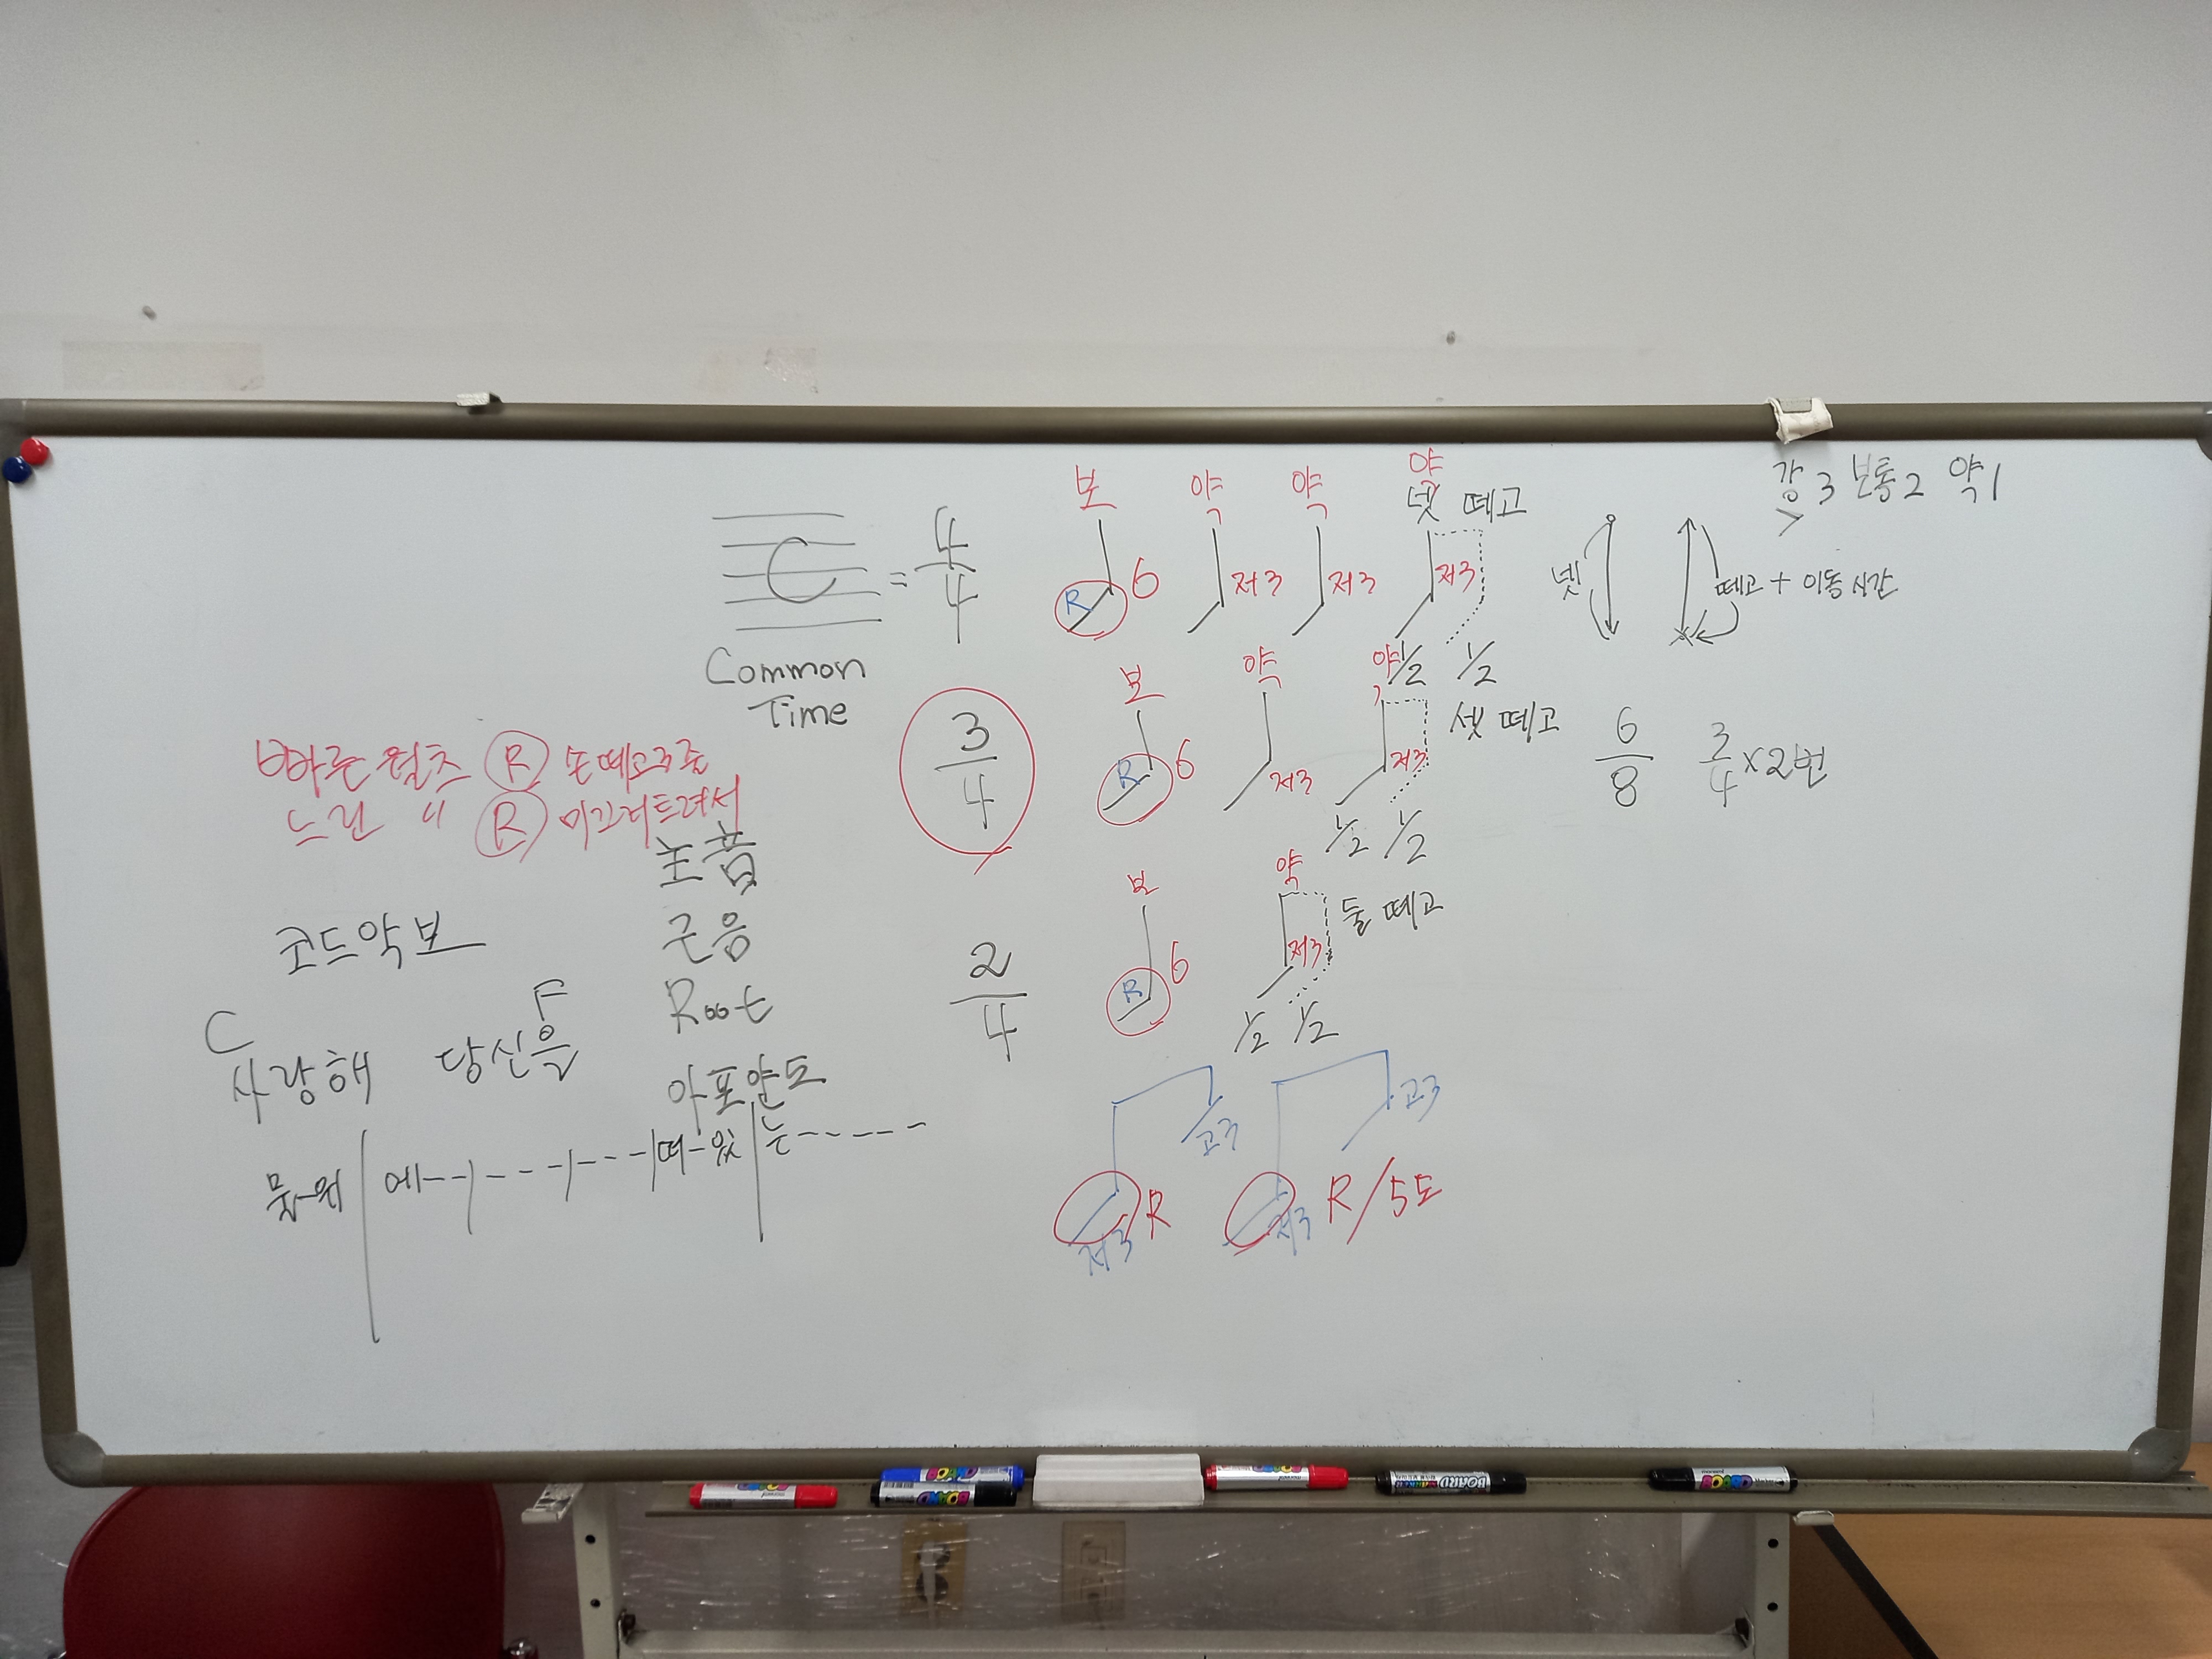 강 3 보통 2 약 1
>
C = 4/4
Common
Time
보 약 약 약
넷 떼고
R 6 저3 저3 저3
1/2 1/2
넷 떼고 + 이동시간
3/4
보 약 약
셋 떼고
R 6 저3 저3
1/2 1/2
6/8 3/4 × 2번
빠른 왈츠 R 손떼고 3줄
느린 〃 R 미끄러트려서
主音
근음
Root
아포얀도
코드악보
C F
사랑해 당신을
물-위 에-- --- --- 떠-있 는-----
2/4
보 약
둘 떼고
R 6 저3
1/2 1/2
고3 고3
R R/5도
저3 저3
BOARD
BOARD
BOARD
BOARD
BOARD